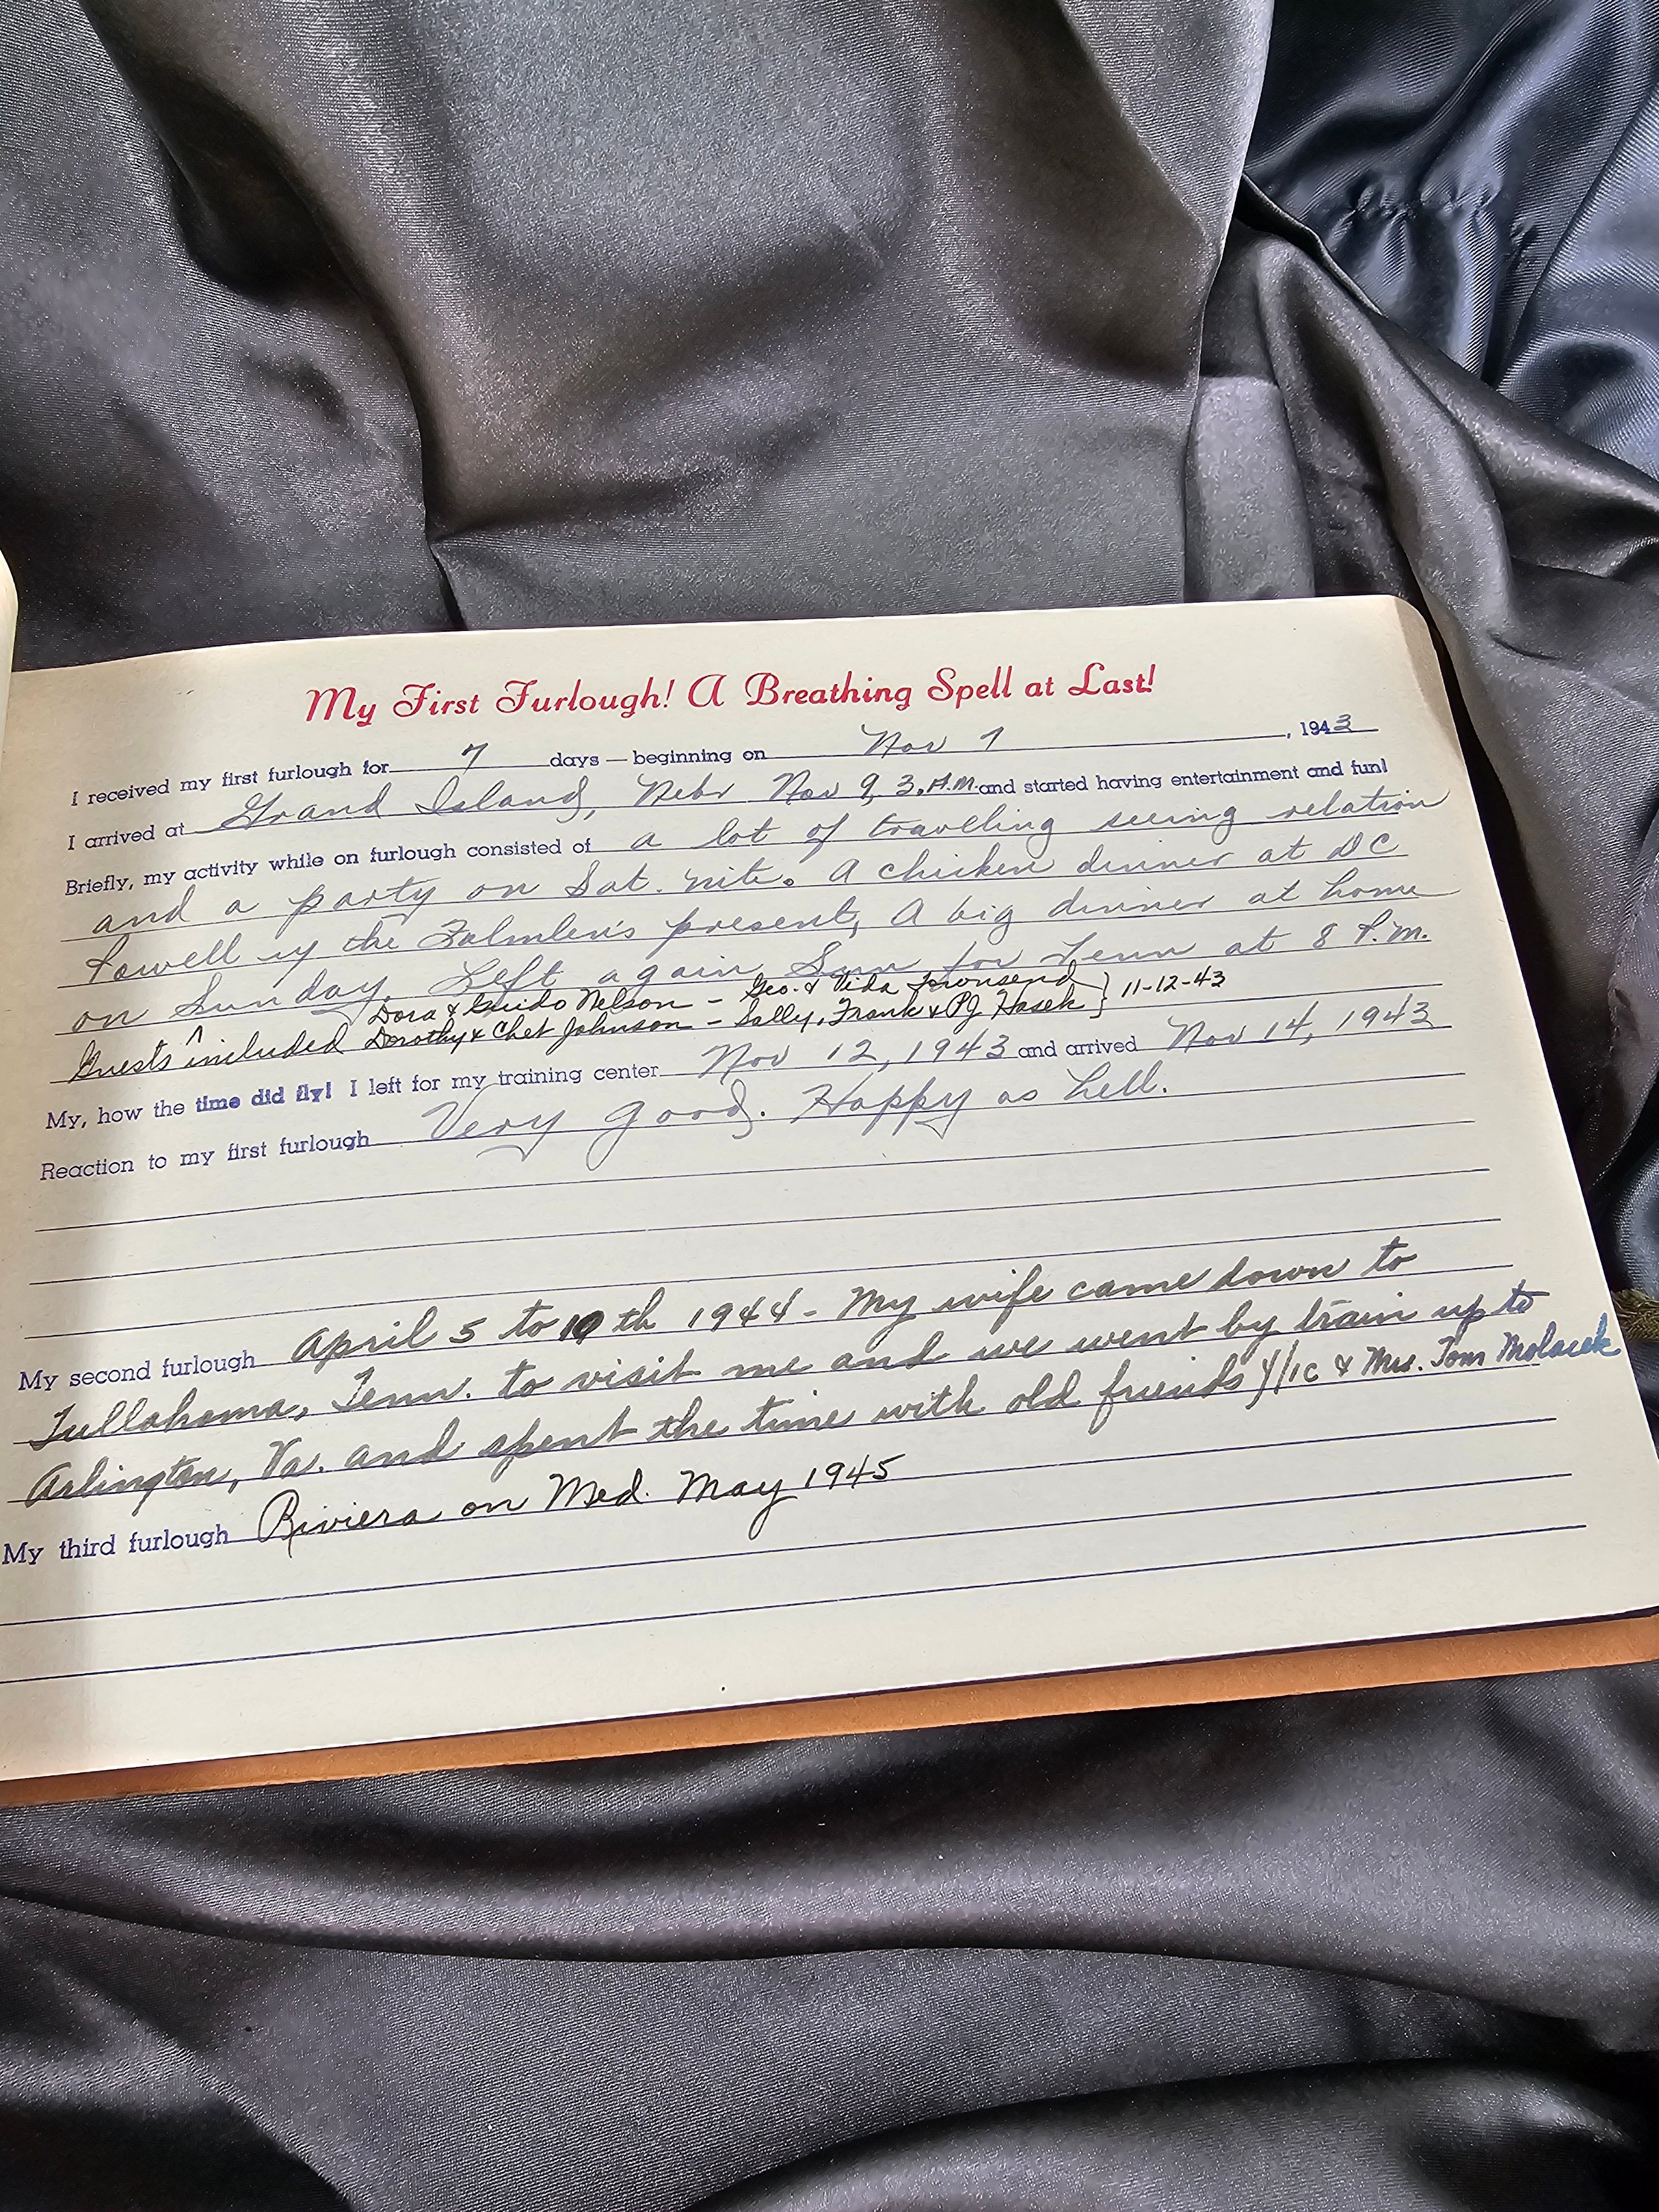 My First Furlough! A Breathing Spell at Last!
I received my first furlough for 7 days — beginning on Nov 7, 1943
I arrived at Grand Island, Nebr Nov 9, 3. A.M. and started having entertainment and fun!
Briefly, my activity while on furlough consisted of a lot of travelling seeing relation
and a party on Sat. nite. A chicken dinner at DC
Powell the present, A big dinner at home
on Sunday. Left again Sun for Tenn at 8 P.M.
Dora & Guido Nelson — Geo. & Vida Townsend } 11-12-43
Guests ^ included Dorothy & Chet Johnson — Sally, Frank & PJ Hasek
My, how the time did fly! I left for my training center Nov 12, 1943 and arrived Nov 14, 1943
Reaction to my first furlough Very good. Happy as hell.
My second furlough April 5 to 10 th 1944 - My wife came down to
Tullahoma, Tenn. to visit me and we went by train up to
Arlington, Va. and spent the time with old friends Y/1c & Mrs. Tom Molacek
My third furlough Riviera on Med. May 1945